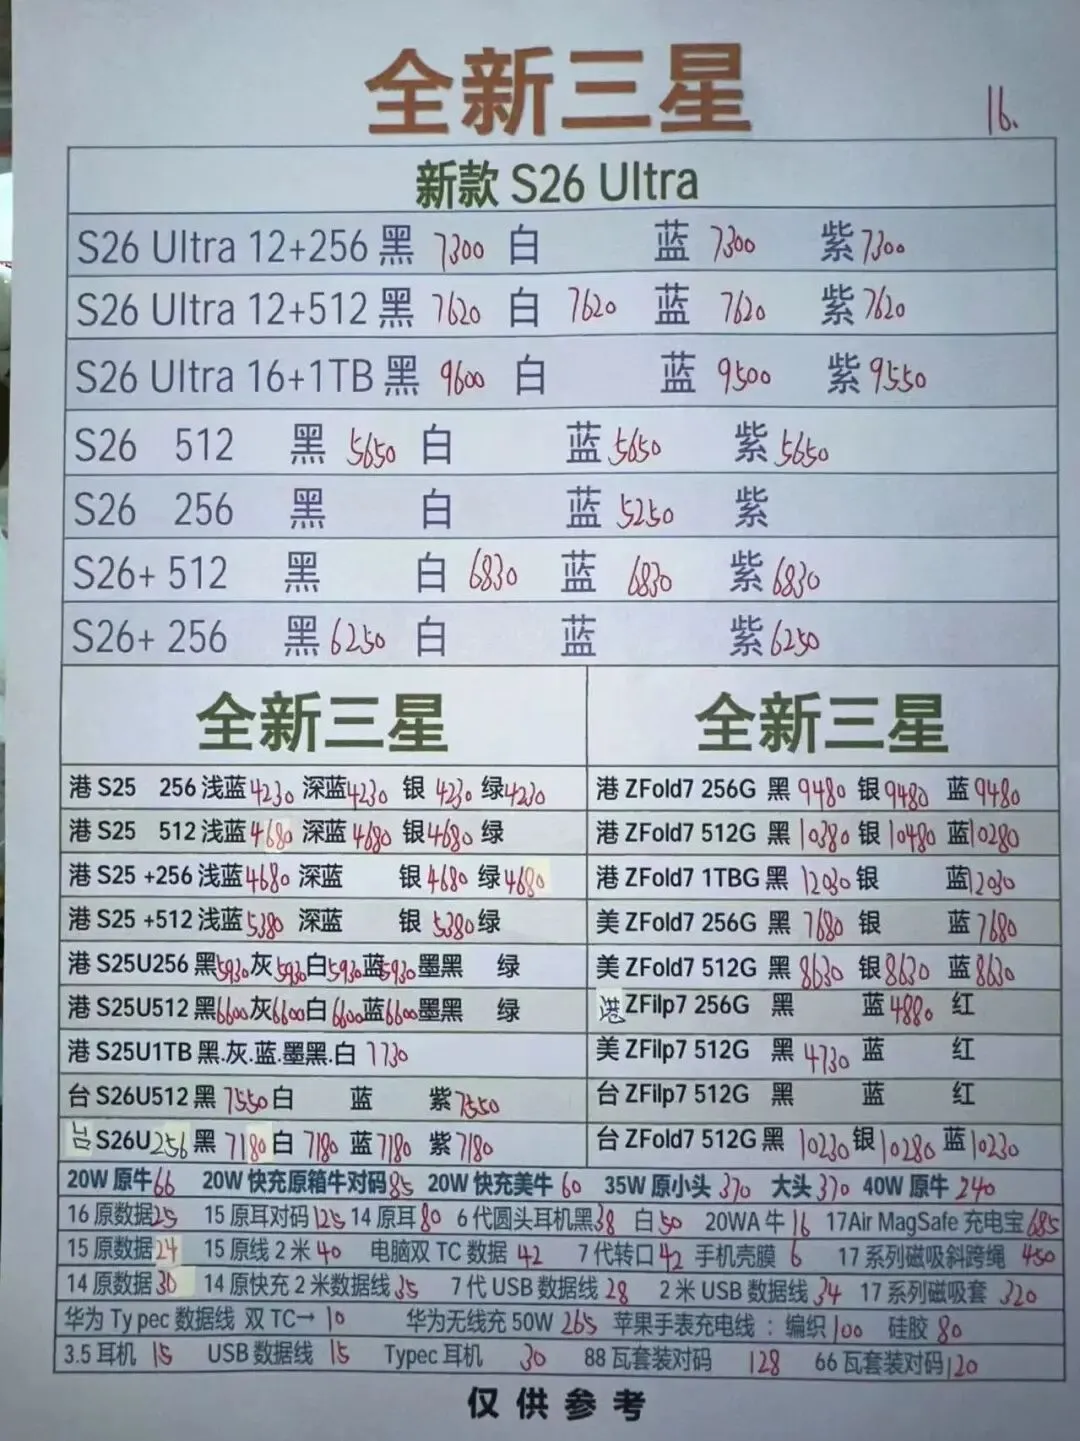 全新三星
16.
新款 S26 Ultra
S26 Ultra 12+256 黑 7300 白 蓝 7300 紫 7300
S26 Ultra 12+512 黑 7620 白 7620 蓝 7620 紫 7620
S26 Ultra 16+1TB 黑 9600 白 蓝 9500 紫 9550
S26 512 黑 5650 白 蓝 5650 紫 5650
S26 256 黑 白 蓝 5250 紫
S26+ 512 黑 白 6830 蓝 6830 紫 6830
S26+ 256 黑 6250 白 蓝 紫 6250
全新三星
港 S25 256 浅蓝 4230 深蓝 4230 银 4230 绿 4230
港 S25 512 浅蓝 4680 深蓝 4680 银 4680 绿
港 S25 +256 浅蓝 4680 深蓝 银 4680 绿 4680
港 S25 +512 浅蓝 5380 深蓝 银 5380 绿
港 S25U256 黑 5930 灰 5930 白 5930 蓝 5930 墨黑 绿
港 S25U512 黑 6600 灰 6600 白 6600 蓝 6600 墨黑 绿
港 S25U1TB 黑.灰.蓝.墨黑.白 7730
台 S26U512 黑 7550 白 蓝 紫 7550
台 S26U256 黑 7180 白 7180 蓝 7180 紫 7180
全新三星
港 ZFold7 256G 黑 9480 银 9480 蓝 9480
港 ZFold7 512G 黑 10380 银 10480 蓝 10280
港 ZFold7 1TBG 黑 12030 银 蓝 12030
美 ZFold7 256G 黑 7680 银 蓝 7680
美 ZFold7 512G 黑 8630 银 8630 蓝 8630
港 ZFilp7 256G 黑 蓝 4880 红
美 ZFilp7 512G 黑 4730 蓝 红
台 ZFilp7 512G 黑 蓝 红
台 ZFold7 512G 黑 10230 银 10280 蓝 10230
20W 原牛 66 20W 快充原箱牛对码 85 20W 快充美牛 60 35W 原小头 370 大头 370 40W 原牛 240
16 原数据 25 15 原耳对码 125 14 原耳 80 6 代圆头耳机黑 38 白 50 20WA 牛 16 17Air MagSafe 充电宝 685
15 原数据 24 15 原线 2 米 40 电脑双 TC 数据 42 7 代转口 42 手机壳膜 6 17 系列磁吸斜跨绳 450
14 原数据 30 14 原快充 2 米数据线 35 7 代 USB 数据线 28 2 米 USB 数据线 34 17 系列磁吸套 320
华为 Ty pec 数据线 双 TC→ 10 华为无线充 50W 265 苹果手表充电线 ： 编织 100 硅胶 80
3.5 耳机 15 USB 数据线 15 Typec 耳机 30 88 瓦套装对码 128 66 瓦套装对码 120
仅供参考